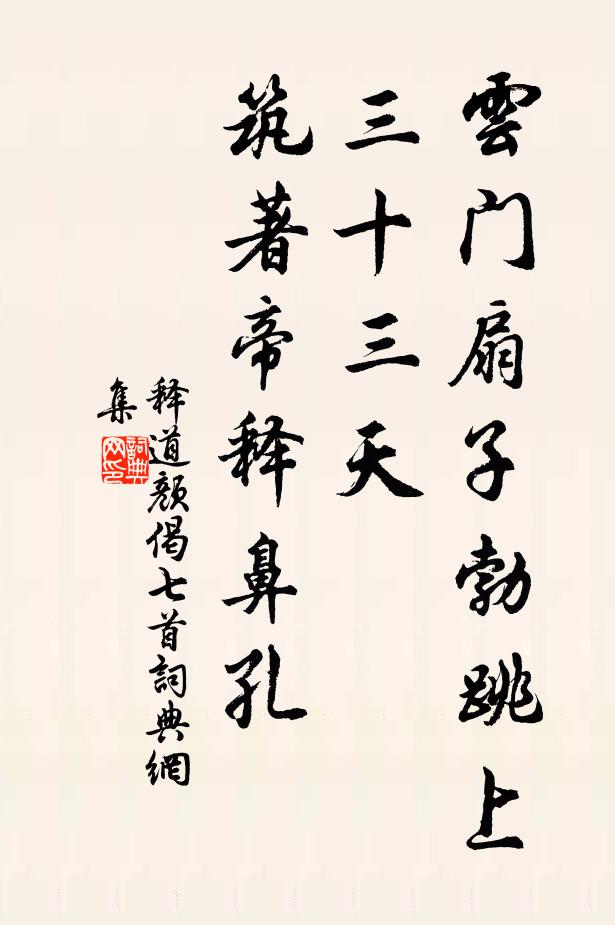 雲门扇子勃跳上
三十三天
筑著帝释鼻孔
释道颜偈七首詞典網
集
詞典
网印